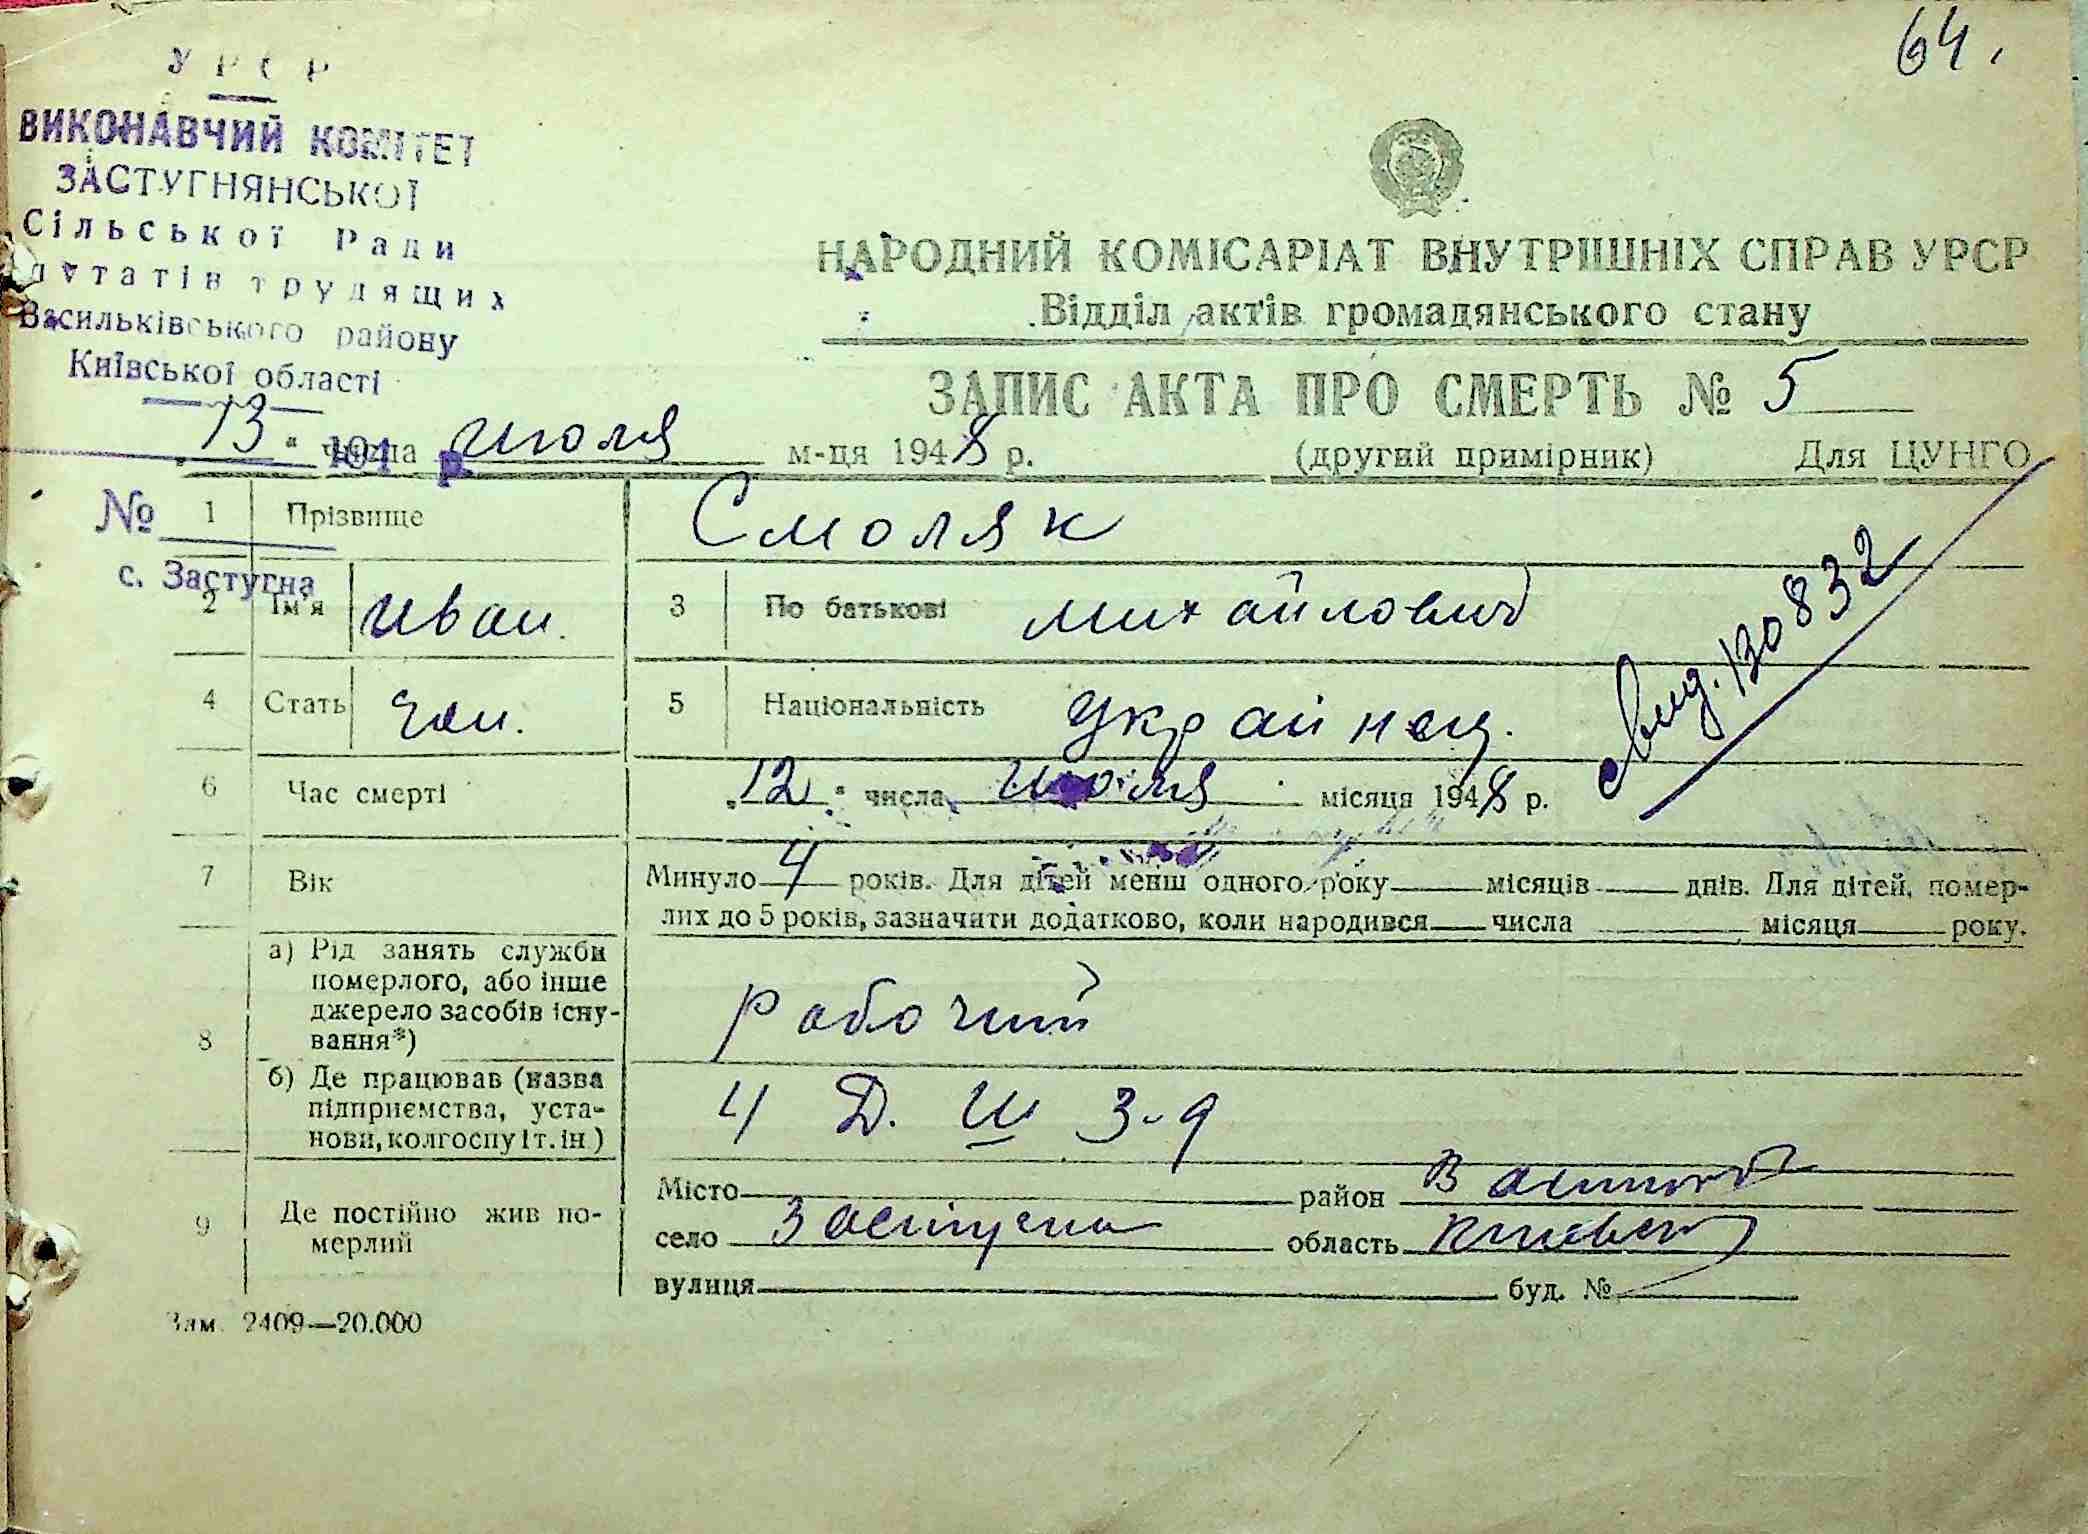 64.
УРСР
ВИКОНАВЧИЙ КОМІТЕТ
ЗАСТУГНЯНСЬКОЇ
Сільської Ради
путатів трудящих
Васильківського району
Київської області
194 р.
№
с. Застугна
НАРОДНИЙ КОМІСАРІАТ ВНУТРІШНІХ СПРАВ УРСР
Відділ актів громадянського стану
ЗАПИС АКТА ПРО СМЕРТЬ № 5
„13“ числа июля м-ця 1948 р. (другий примірник) Для ЦУНГО
1 Прізвище Смоляк
2 Ім'я Иван. 3 По батькові Михайлович
4 Стать чол. 5 Національність Украинец.
свид. 130832
6 Час смерті „12“ числа июля місяця 1948 р.
7 Вік Минуло 4 років. Для дітей менш одного року місяців днів. Для дітей, помер-
лих до 5 років, зазначити додатково, коли народився числа місяця року.
8 а) Рід занять служби
померлого, або інше
джерело засобів існу-
вання*)
Рабочий
б) Де працював (назва
підприємства, уста-
нови, колгоспу і т. ін.)
4 Д. Ш З-д
9 Де постійно жив по-
мерлий
Місто район
село Застугна область Киевск
вулиця буд. №
Зам. 2409—20.000